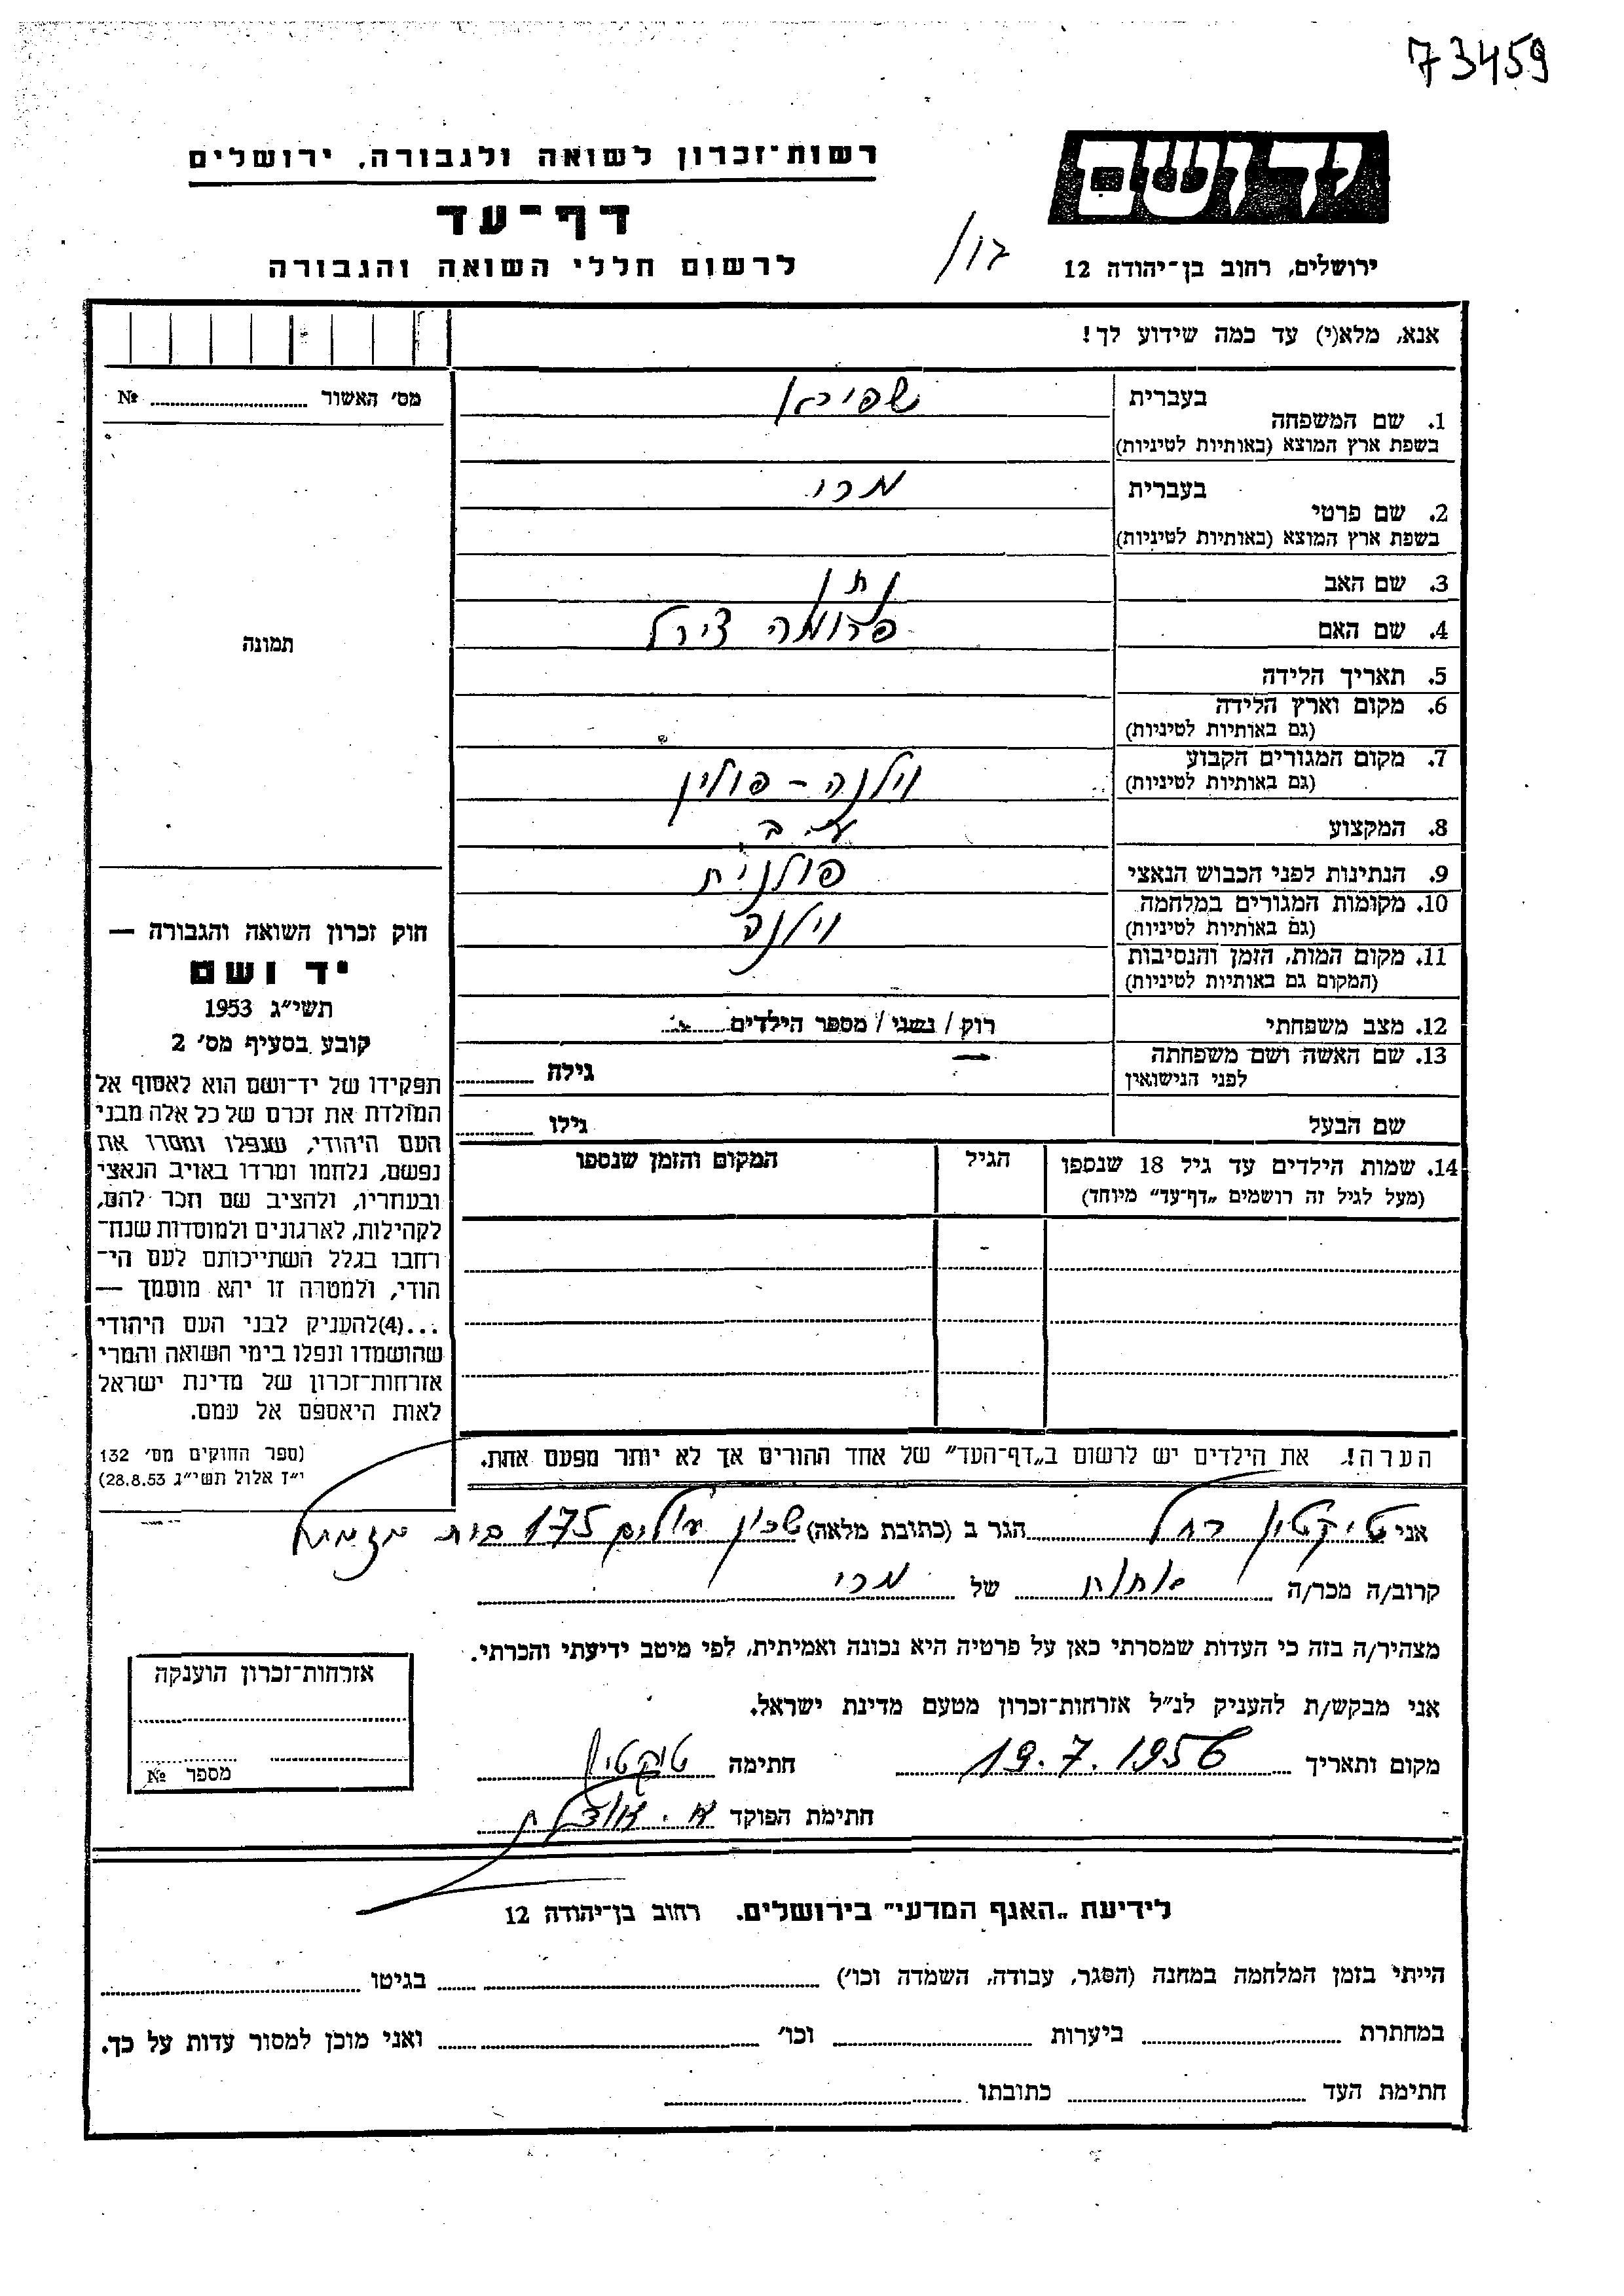 73459
רשות־זכרון לשואה ולגבורה, ירושלים
דף־עד
לרשום חללי השואה והגבורה
יד ושם
ירושלים, רחוב בן־יהודה 12
אנא, מלא(י) עד כמה שידוע לך!
מס׳ האשור № 
תמונה
1. שם המשפחה
בעברית
שפירא
בשפת ארץ המוצא (באותיות לטיניות)
2. שם פרטי
בעברית
בשפת ארץ המוצא (באותיות לטיניות)
3. שם האב
4. שם האם פרומה
5. תאריך הלידה
6. מקום וארץ הלידה
(גם באותיות לטיניות)
7. מקום המגורים הקבוע וילנה - פולין
(גם באותיות לטיניות)
8. המקצוע
9. הנתינות לפני הכבוש הנאצי פולנית
10. מקומות המגורים במלחמה וילנה
(גם באותיות לטיניות)
11. מקום המות, הזמן והנסיבות
(המקום גם באותיות לטיניות)
12. מצב משפחתי רוק / נשוי / מספר הילדים
13. שם האשה ושם משפחתה גילה
לפני הנישואין
שם הבעל גילו
14. שמות הילדים עד גיל 18 שנספו הגיל המקום והזמן שנספו
(מעל לגיל זה רושמים „דף־עד" מיוחד)
חוק זכרון השואה והגבורה —
יד ושם
תשי״ג 1953
קובע בסעיף מס׳ 2
תפקידו של יד־ושם הוא לאסוף אל
המולדת את זכרם של כל אלה מבני
העם היהודי, שנפלו ומסרו את
נפשם, נלחמו ומרדו באויב הנאצי
ובעוזריו, ולהציב שם וזכר להם,
לקהילות, לארגונים ולמוסדות שנח־
רבו בגלל השתייכותם לעם הי־
הודי, ולמטרה זו יהא מוסמך —
...(4)להעניק לבני העם היהודי
שהושמדו ונפלו בימי השואה והמרי
אזרחות־זכרון של מדינת ישראל
לאות היאספם אל עמם.
(ספר החוקים מס׳ 132
י״ז אלול תשי״ג 28.8.53)
הערה! את הילדים יש לרשום ב„דף־העד" של אחד ההורים אך לא יותר מפעם אחת.
אני טיקטין רחל הגר ב (כתובת מלאה) שכון עולים 175
קרוב/ה מכר/ה אחות של
מצהיר/ה בזה כי העדות שמסרתי כאן על פרטיה היא נכונה ואמיתית, לפי מיטב ידיעתי והכרתי.
אני מבקש/ת להעניק לנ״ל אזרחות־זכרון מטעם מדינת ישראל.
מקום ותאריך 19.7.1956 חתימה טיקטין
חתימת הפוקד
אזרחות־זכרון הוענקה
מספר №
לידיעת „האגף המדעי" בירושלים. רחוב בן־יהודה 12
הייתי בזמן המלחמה במחנה (הסגר, עבודה, השמדה וכו׳) בגיטו
במחתרת ביערות וכו׳ ואני מוכן למסור עדות על כך.
חתימת העד כתובתו